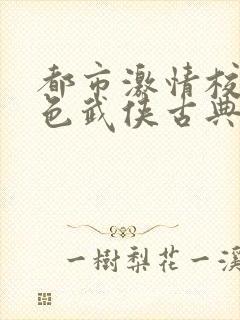 都市激情校
色武侠古典
一樹梨花一溪